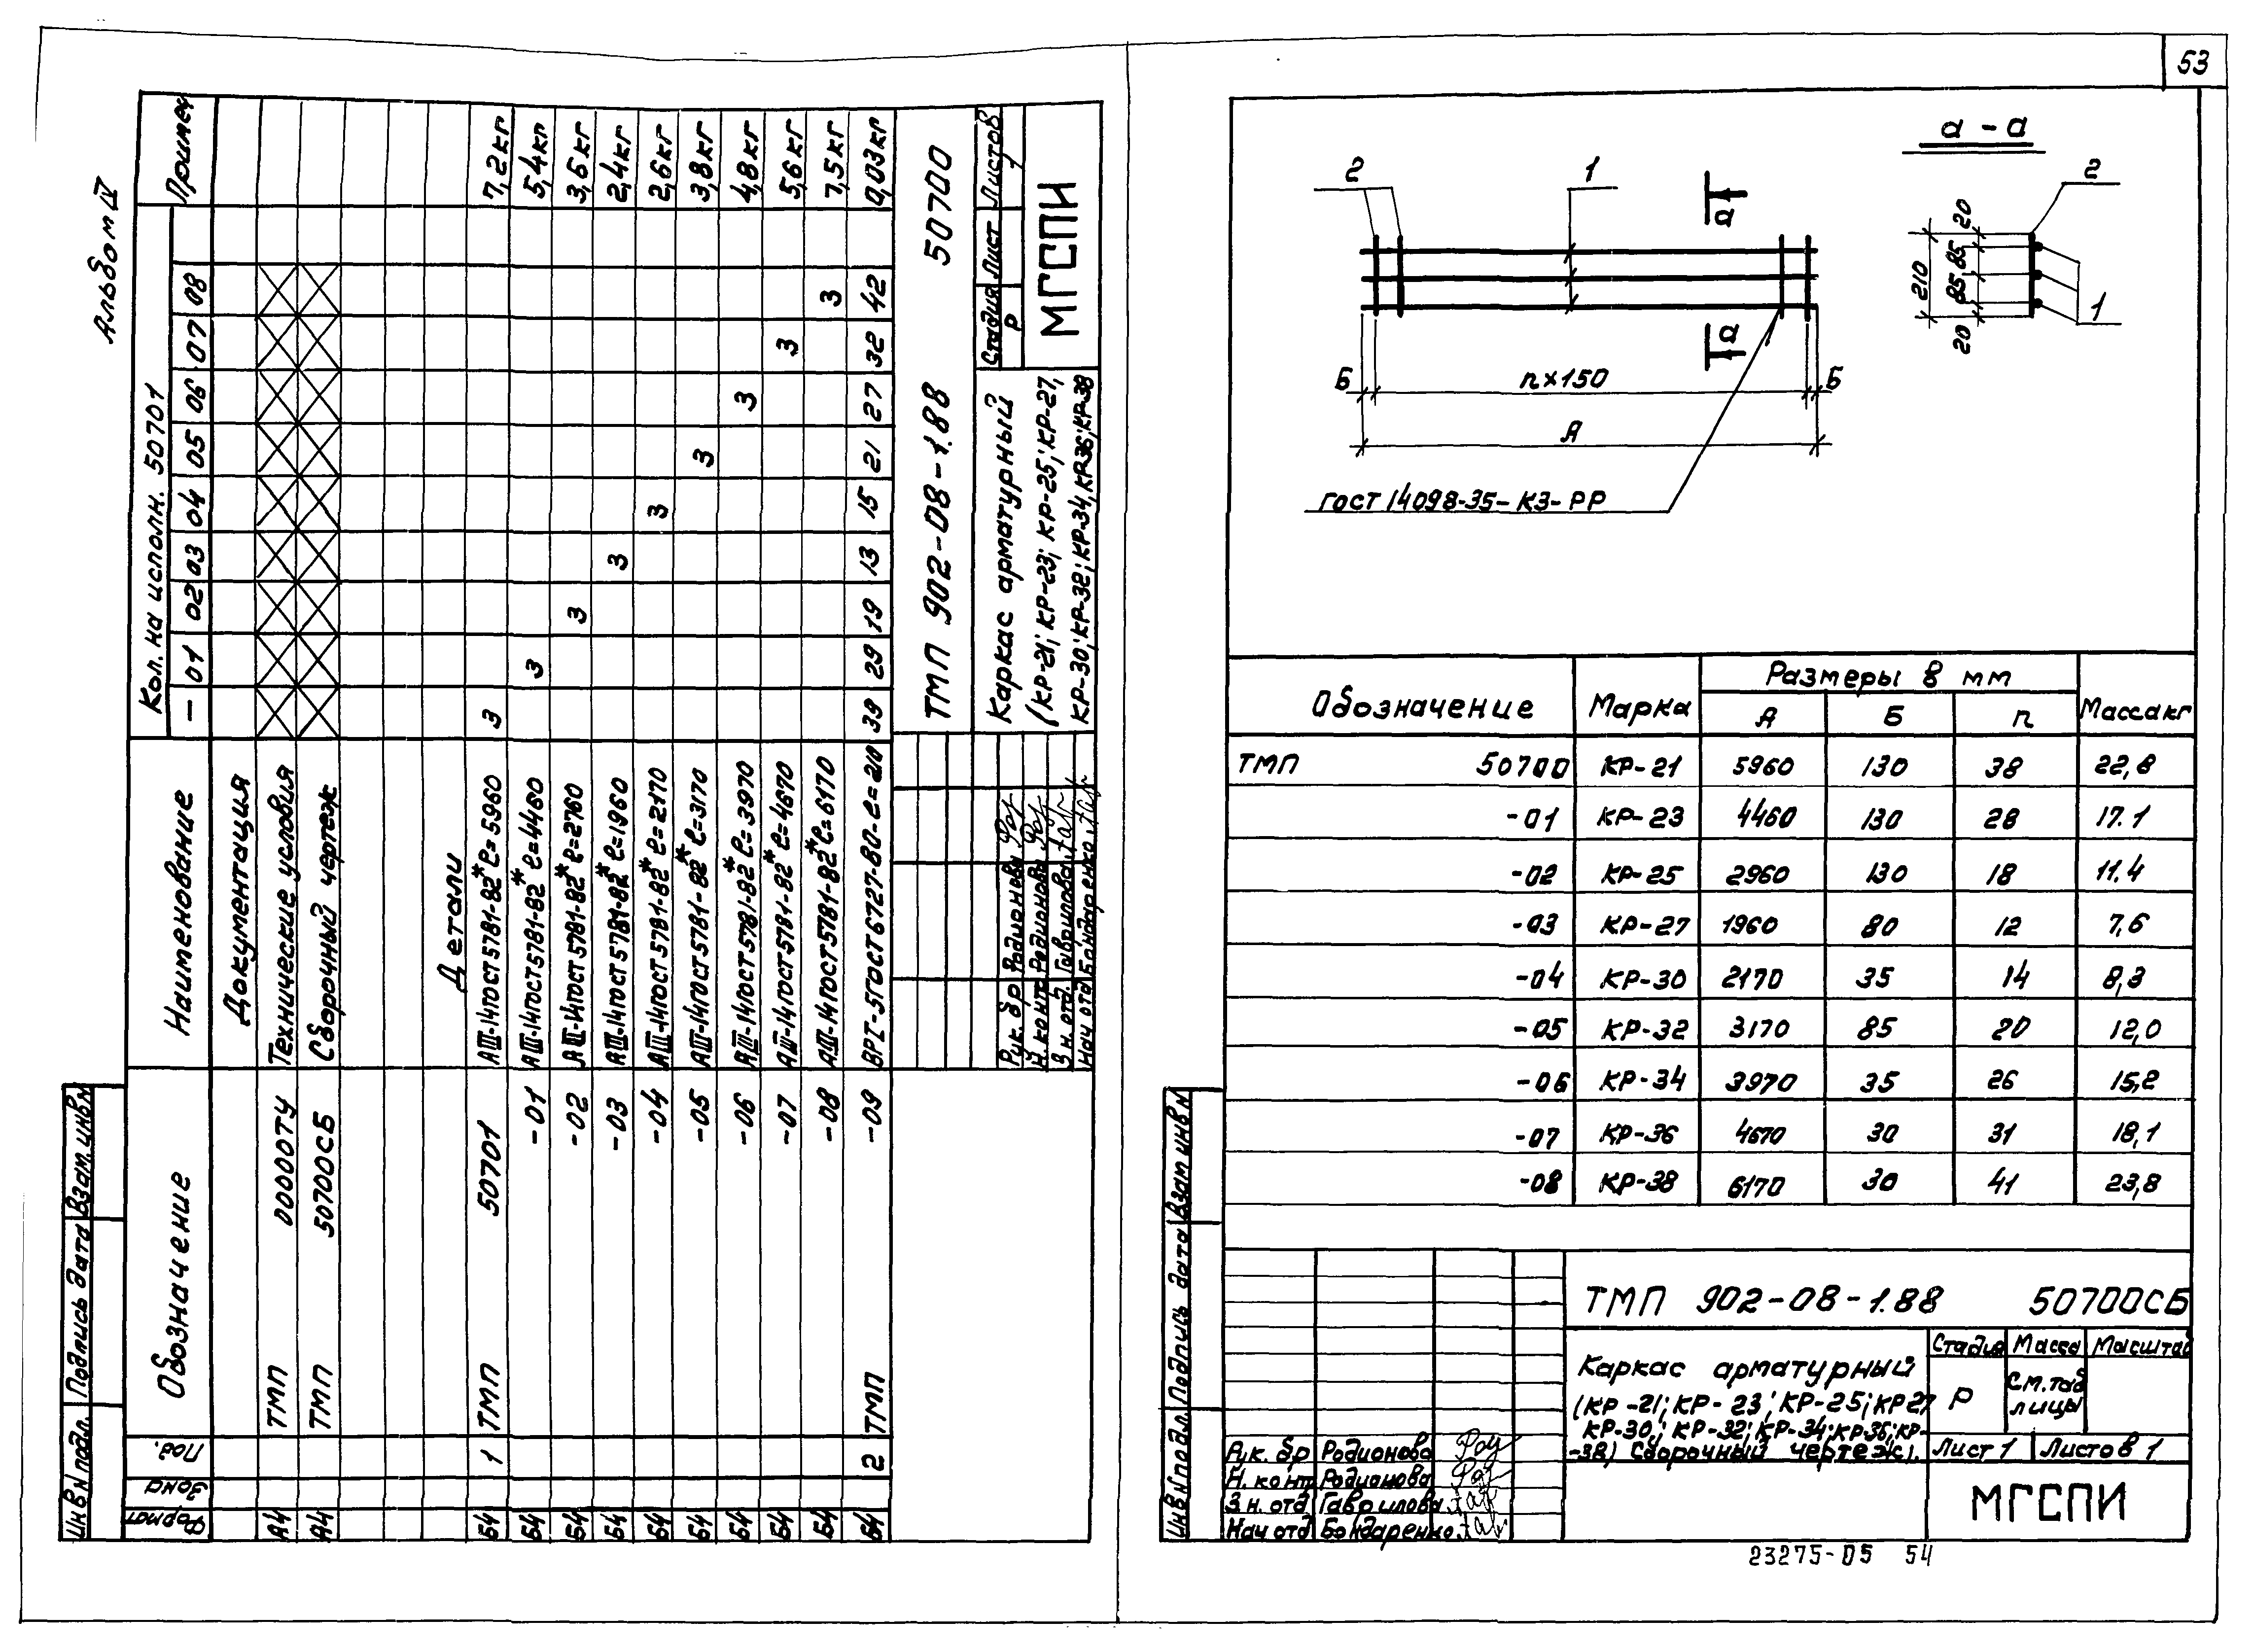 53
Альбом IV
Формат Зона Поз. Обозначение Наименование Кол. на исполн. 50701 Примеч
— 01 02 03 04 05 06 07 08
Документация
А4 ТМП 0000ТУ Технические условия
А4 ТМП 50700СБ Сборочный чертеж
Детали
Б4 1 ТМП 50701 АIII-14ГОСТ5781-82* ℓ=5960 3 7,2кг
Б4 -01 АIII-14ГОСТ5781-82* ℓ=4460 3 5,4кг
Б4 -02 АIII-14ГОСТ5781-82* ℓ=2960 3 3,6кг
Б4 -03 АIII-14ГОСТ5781-82* ℓ=1960 3 2,4кг
Б4 -04 АIII-14ГОСТ5781-82* ℓ=2170 3 2,6кг
Б4 -05 АIII-14ГОСТ5781-82* ℓ=3170 3 3,8кг
Б4 -06 АIII-14ГОСТ5781-82* ℓ=3970 3 4,8кг
Б4 -07 АIII-14ГОСТ5781-82* ℓ=4670 3 5,6кг
Б4 -08 АIII-14ГОСТ5781-82* ℓ=6170 3 7,5кг
Б4 2 ТМП -09 ВРI-5ГОСТ6727-80-ℓ=210 39 29 19 13 15 21 27 32 42 0,03кг
ТМП 902-08-1.88 50700
Каркас арматурный
(КР-21; КР-23; КР-25; КР-27;
КР-30; КР-32; КР-34, КР36; КР-38
Стадия Лист Листов
Р 1
МГСПИ
Рук. бр Родионова
Н конт Родионова
З н. отд. Гаврилова
Нач отд Бондаренко
Инв N подл. Подпись дата Взам. инв N
а - а
2 1 а 2
20
85
85
20
210
1
а
Б n×150 Б
А
ГОСТ 14098-35-К3-РР
Обозначение Марка Размеры в мм Масса кг
А Б n
ТМП 50700 КР-21 5960 130 38 22,8
-01 КР-23 4460 130 28 17.1
-02 КР-25 2960 130 18 11.4
-03 КР-27 1960 80 12 7,6
-04 КР-30 2170 35 14 8,3
-05 КР-32 3170 85 20 12,0
-06 КР-34 3970 35 26 15,2
-07 КР-36 4670 30 31 18,1
-08 КР-38 6170 30 41 23,8
ТМП 902-08-1.88 50700СБ
Каркас арматурный
(КР-21; КР-23; КР-25; КР27
КР-30; КР-32; КР-34; КР-36; КР-
-38) Сборочный чертеж).
Стадия Масса Масштаб
Р См. таб
лицы
Лист 1 Листов 1
МГСПИ
Рук. бр Родионова
Н. конт Родионова
З.н. отд Гаврилова
Нач отд Бондаренко
Инв N подл. Подпись дата Взам инв N
23275-05 54